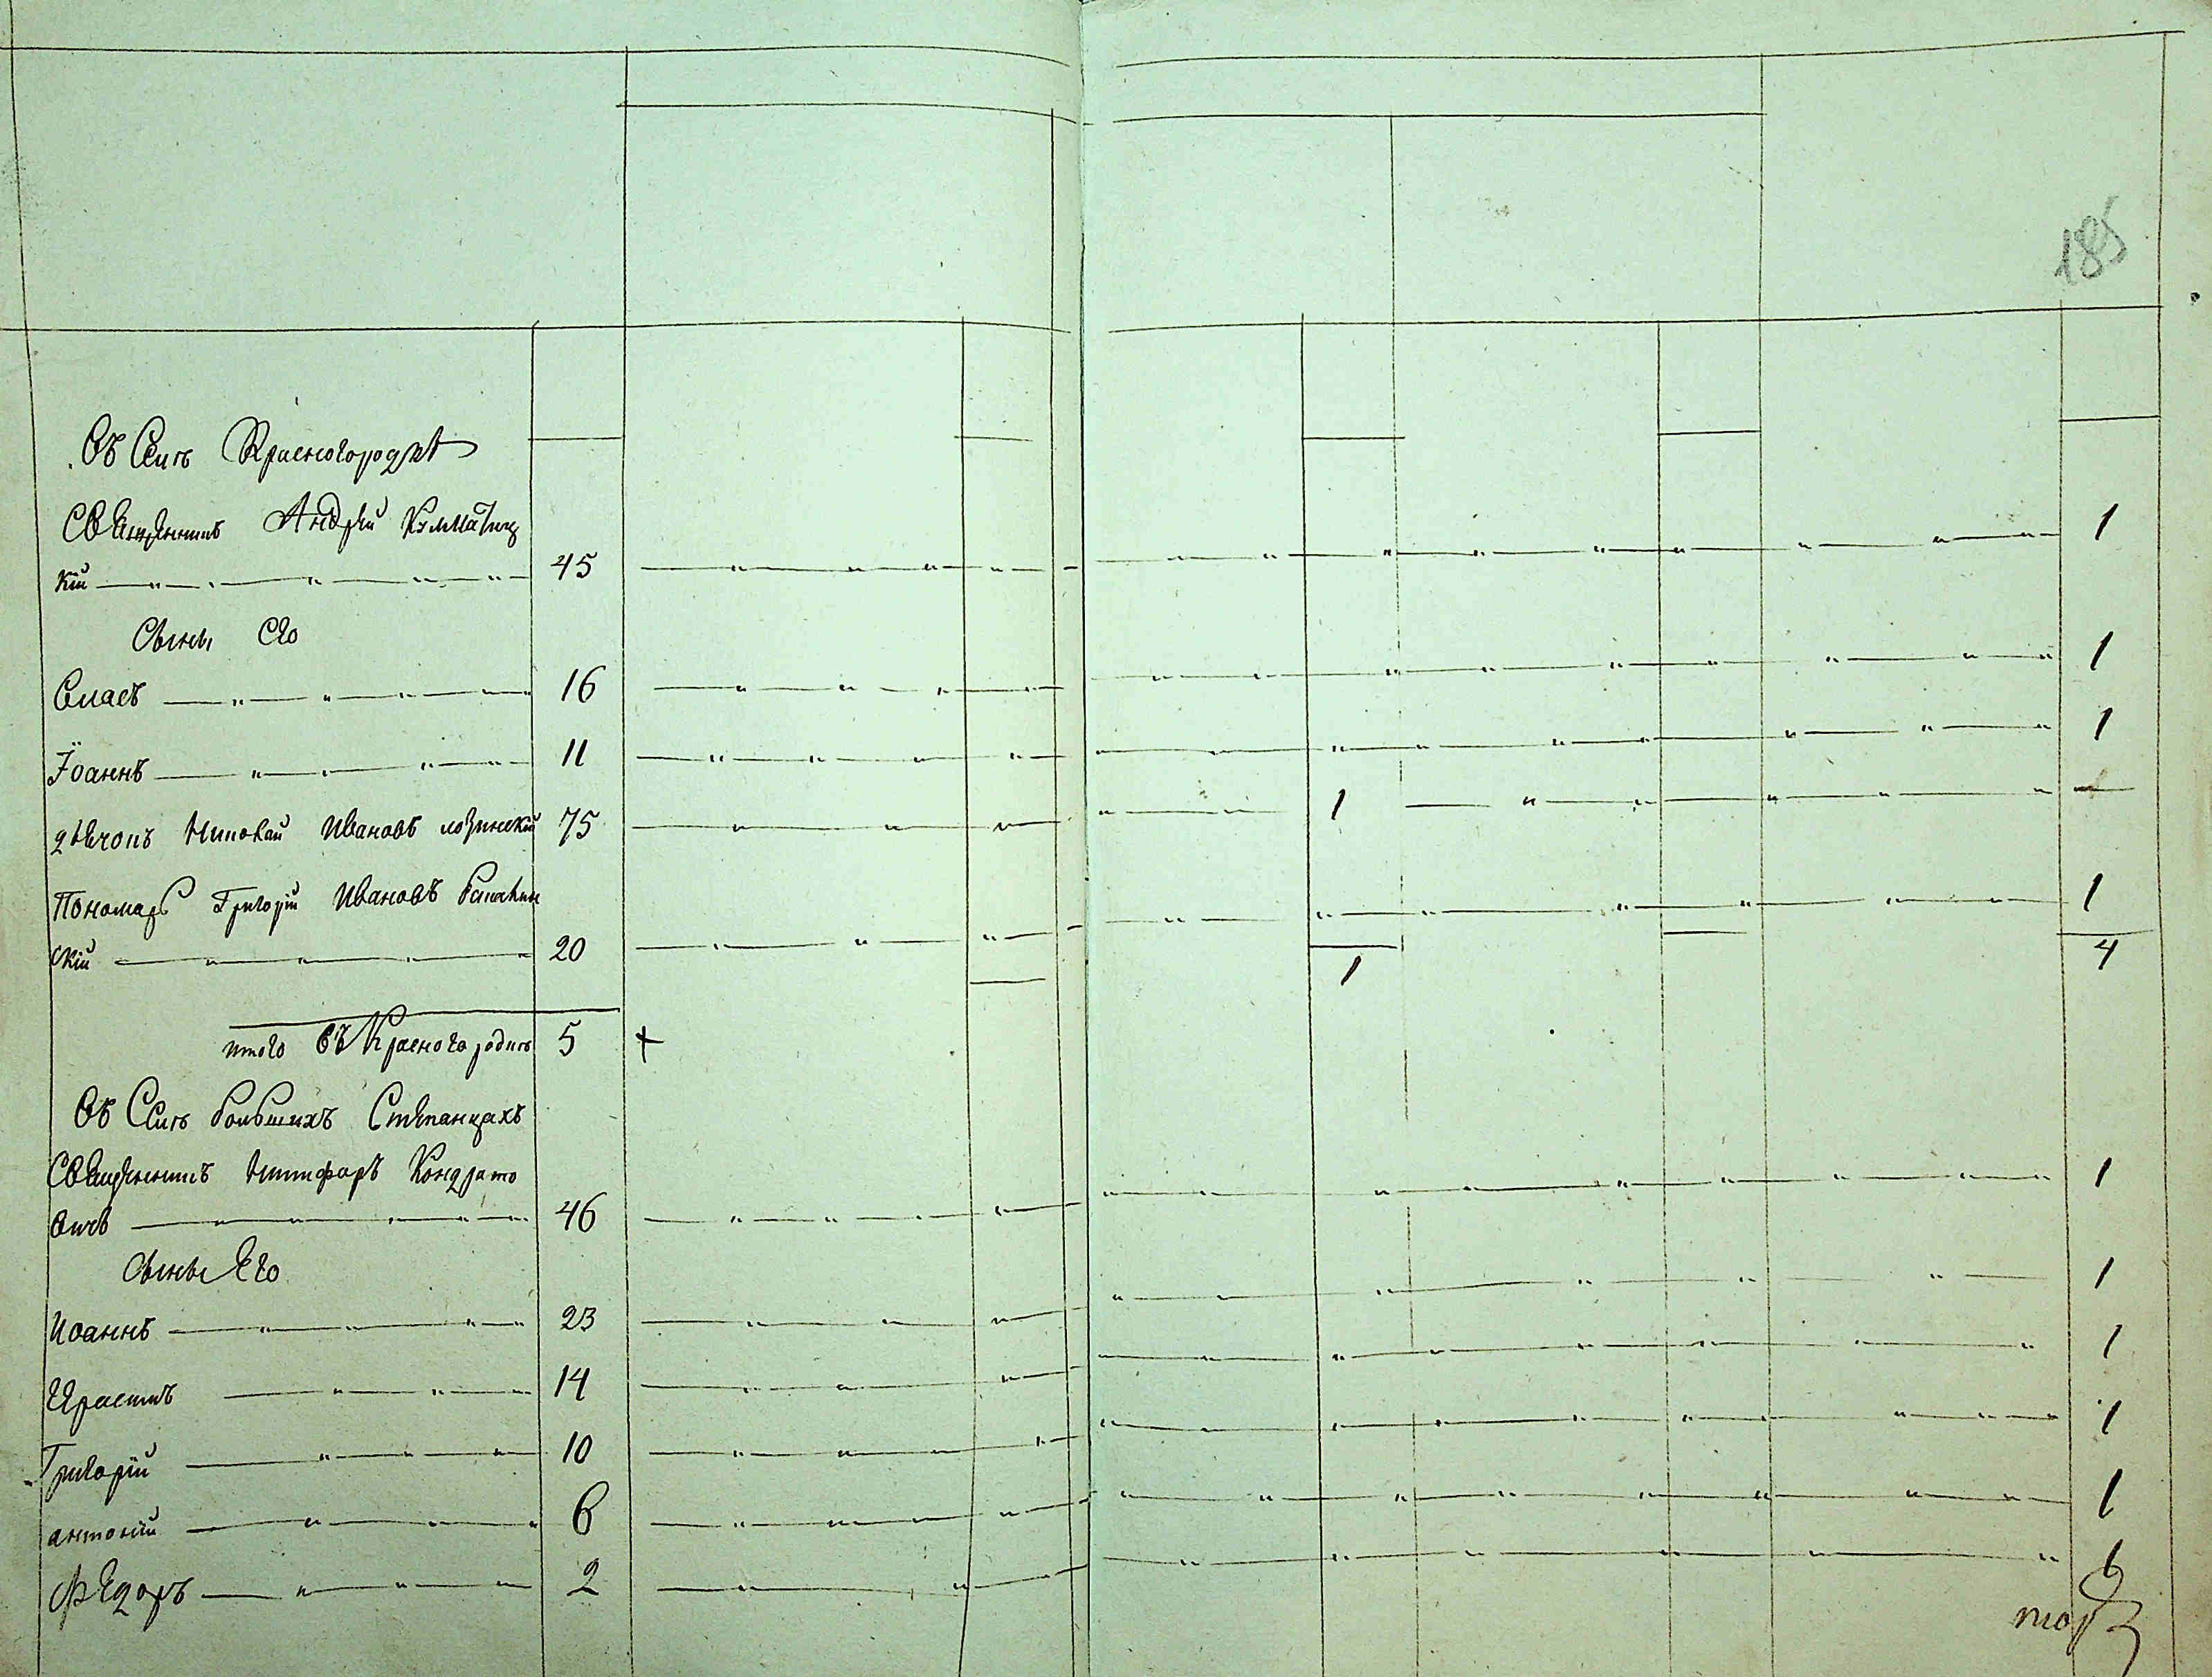 185
Въ Селѣ Красногородкѣ
Священникъ Андрей
кій 45 1
Сыны Его
Власъ 16 1
Іоаннъ 11 1
дьячокъ Николай Ивановъ Лозинскій 75 1
Пономарь Григорій Ивановъ
скій 20 1
1 4
итого въ Красногородкѣ 5 +
Въ Селѣ большихъ Степанцахъ
Священникъ Никифоръ Кондрато
вичъ 46 1
сыны Его
Иоаннъ 23 1
Ерастъ 14 1
Григорій 10 1
антоній 6 1
Федоръ 2 1